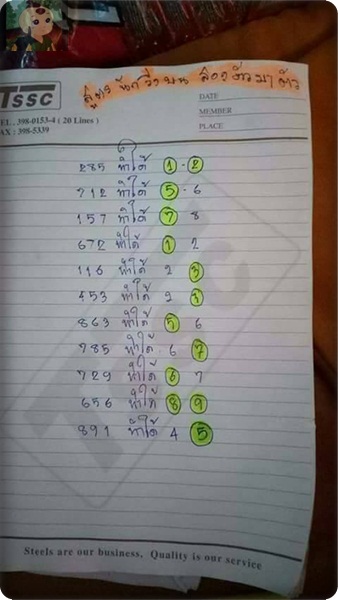 TSSC
TEL . 398-0153-4 ( 20 Lines )
FAX : 398-5339
สูตร นักวิ่งบน สองตัวมาตัว
DATE
MEMBER
PLACE
285 ทำได้ 1 - 2
712 ทำได้ 5 - 6
157 ทำได้ 7 8
672 ทำได้ 1 2
116 ทำได้ 2 3
453 ทำได้ 2 3
863 ทำได้ 5 6
785 ทำได้ 6 7
729 ทำได้ 6 7
656 ทำได้ 8 9
891 ทำได้ 4 5
Steels are our business, Quality is our service